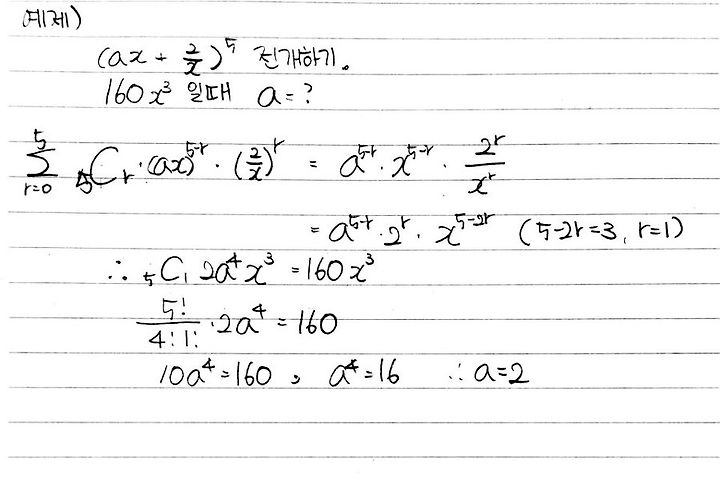 예제)
(ax + 2/x)^5 전개하기.
160x^3 일때 a=?
5∑r=0 5Cr·(ax)^5-r · (2/x)^r = a^5-r · x^5-r · 2^r/x^r
= a^5-r · 2^r · x^5-2r (5-2r=3, r=1)
∴ 5C1 2a^4x^3 = 160x^3
5!/4!1! · 2a^4 = 160
10a^4=160, a^4=16 ∴ a=2